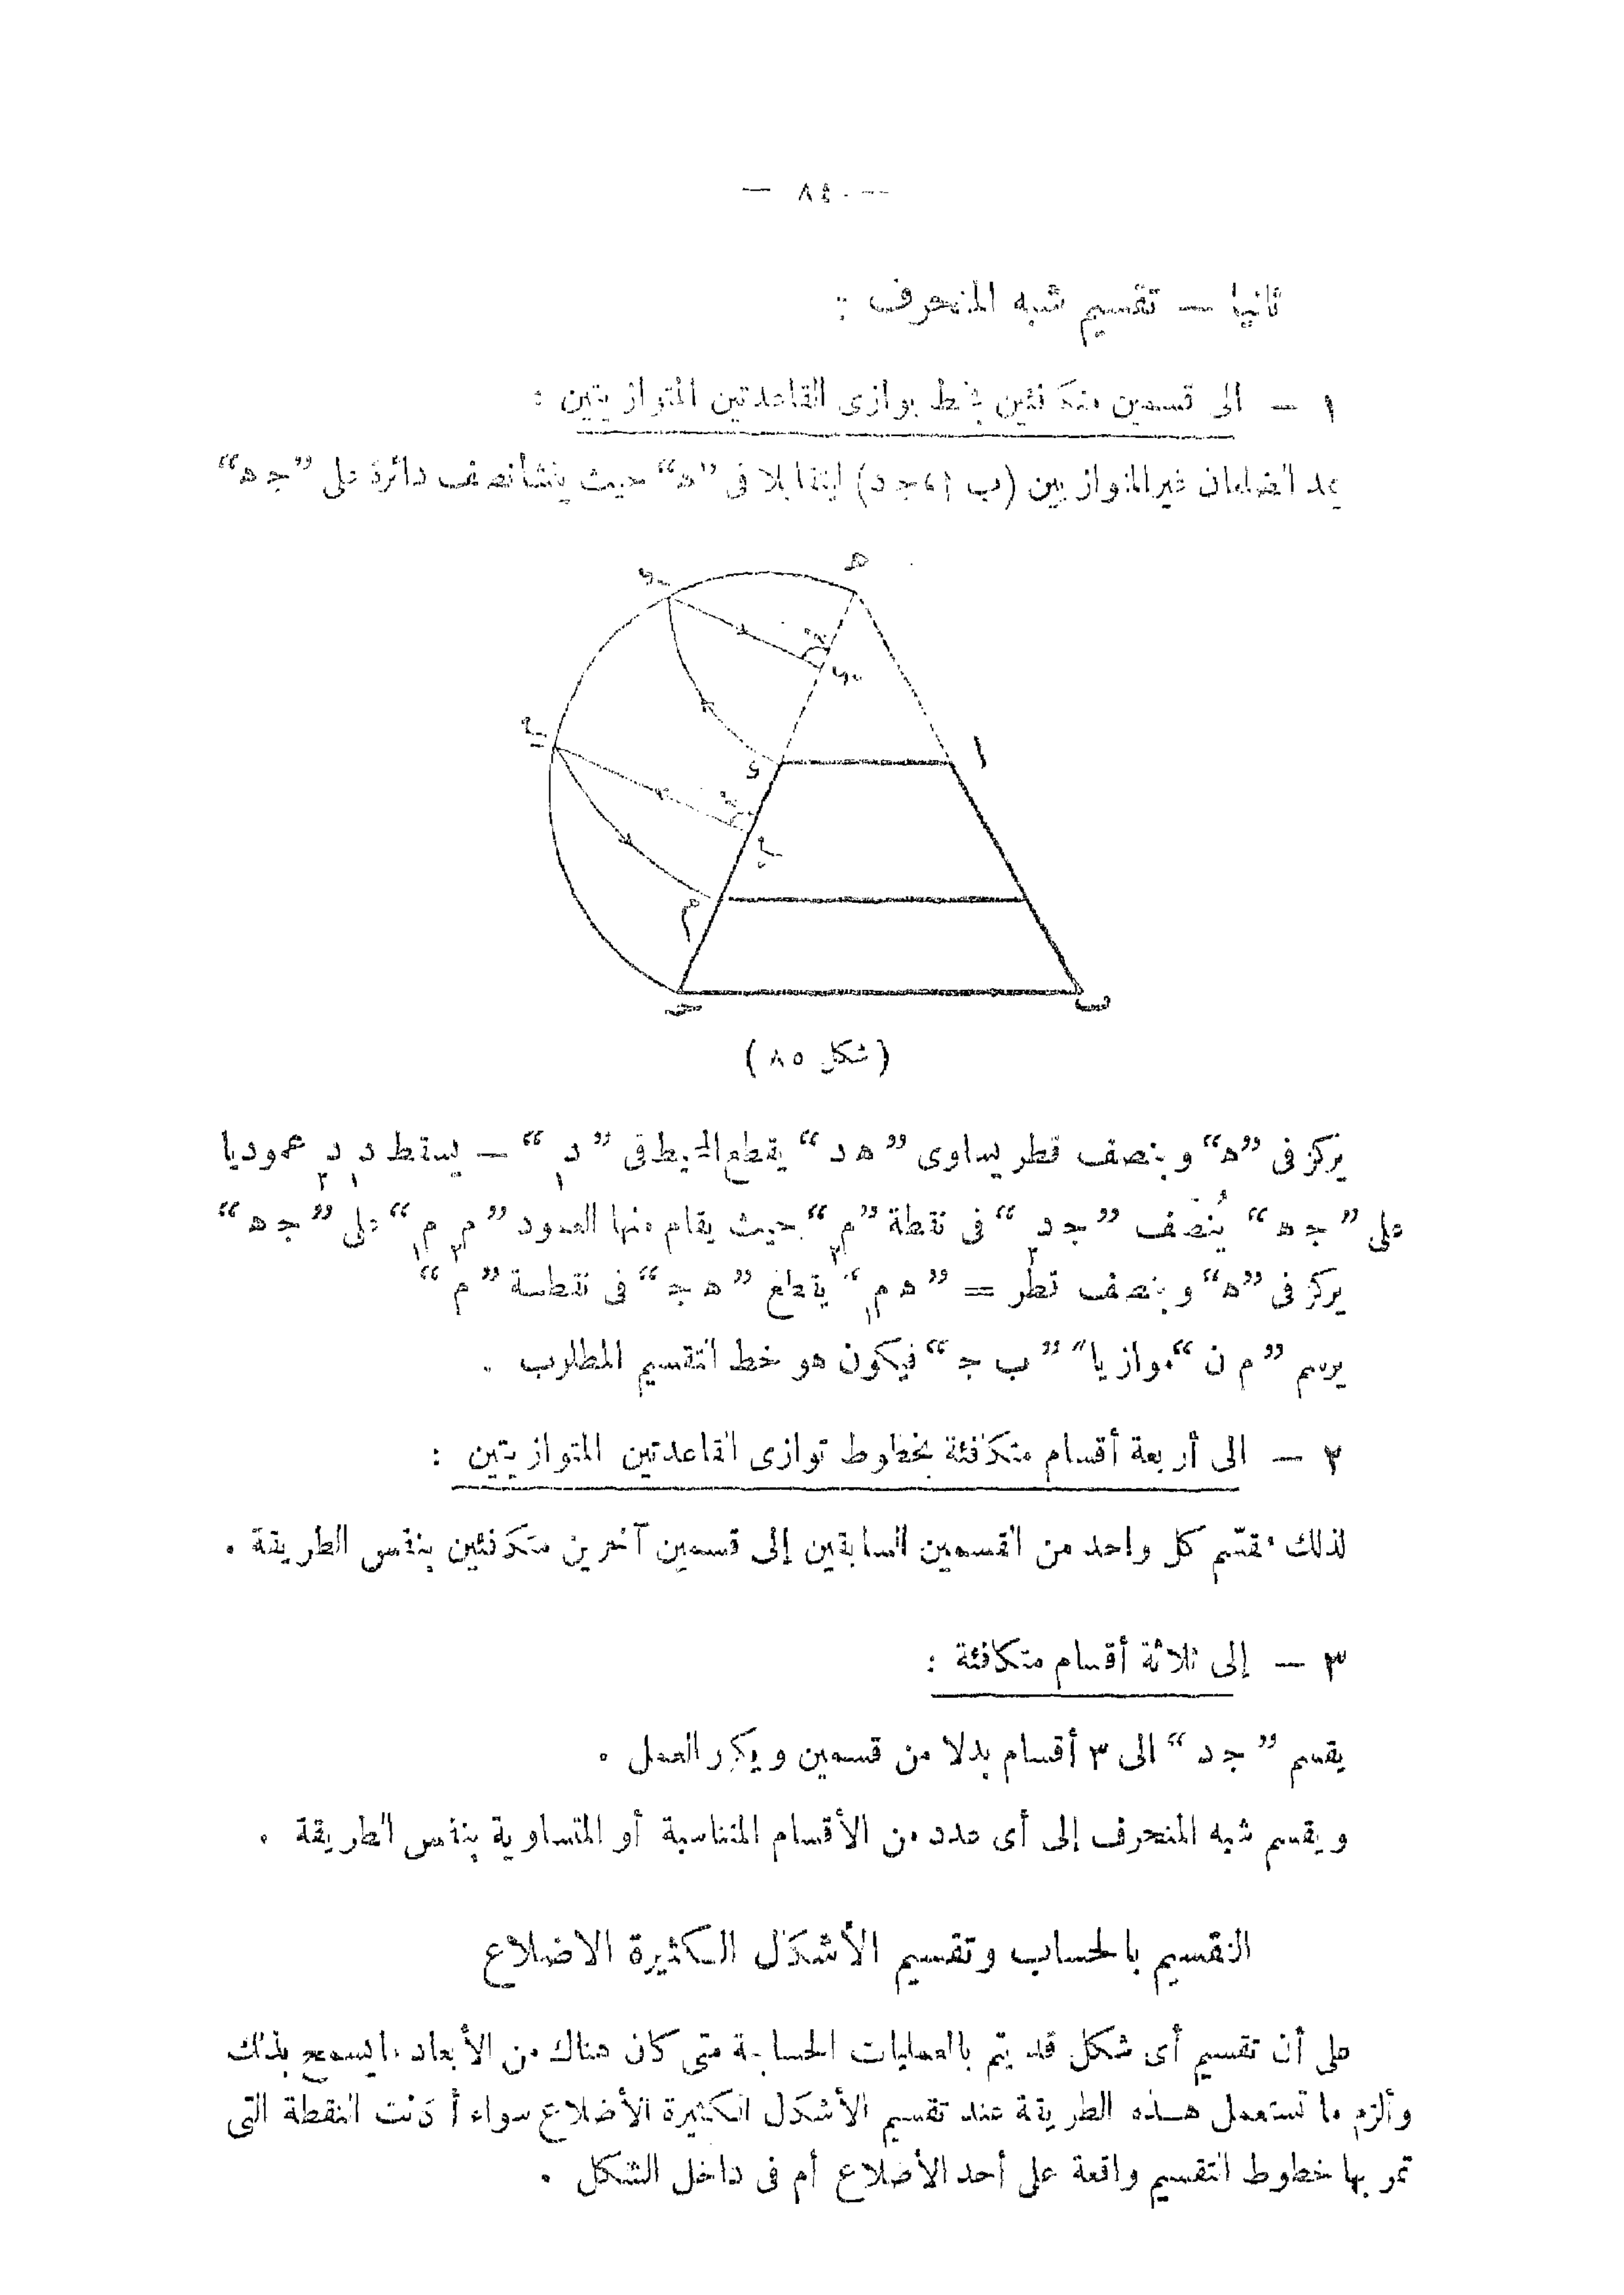 — ٨٤ —
ثانيا — تقسيم شبه المنحرف :
١ — الى قسمين متكافئين بخط يوازى القاعدتين المتوازيتين :
يمد الضلعان غير المتوازيين (ب ا ، جـ د) ليتقابلا فى ”هـ“ حيث ينشأ نصف دائرة على ”جـ هـ“
هـ
د١
د٢
م١
ا
د
م٢
م
جـ
ب
(شكل ٨٥)
يركز فى ”هـ“ وبنصف قطر يساوى ”هـ د“ يقطع المحيط فى ”د١“ — يسقط د١ د٢ عموديا
على ”جـ هـ“ يُنصّف ”جـ د٢“ فى نقطة ”م٢“ حيث يقام منها العمود ”م٢ م١“ على ”جـ هـ“
يركز فى ”هـ“ وبنصف قطر = ”هـ م١“ يقطع ”هـ جـ“ فى نقطة ”م“
يرسم ”م ن“ موازيا ”ب جـ“ فيكون هو خط التقسيم المطلوب .
٢ — الى أربعة أقسام متكافئة بخطوط توازى القاعدتين المتوازيتين :
لذلك نقسّم كل واحد من القسمين السابقين إلى قسمين آخرين متكافئين بنفس الطريقة .
٣ — إلى ثلاثة أقسام متكافئة :
يقسم ”جـ د“ الى ٣ أقسام بدلا من قسمين ويكرر العمل .
ويقسم شبه المنحرف إلى أى عدد من الأقسام المتناسبة أو المتساوية بنفس الطريقة .
التقسيم بالحساب وتقسيم الأشكال الكثيرة الاضلاع
على أن تقسيم أى شكل قد يتم بالعمليات الحسابية متى كان هناك من الأبعاد ما يسمح بذلك
وألزم ما تستعمل هذه الطريقة عند تقسيم الأشكال الكثيرة الأضلاع سواء أكانت النقطة التى
تمر بها خطوط التقسيم واقعة على أحد الأضلاع أم فى داخل الشكل .